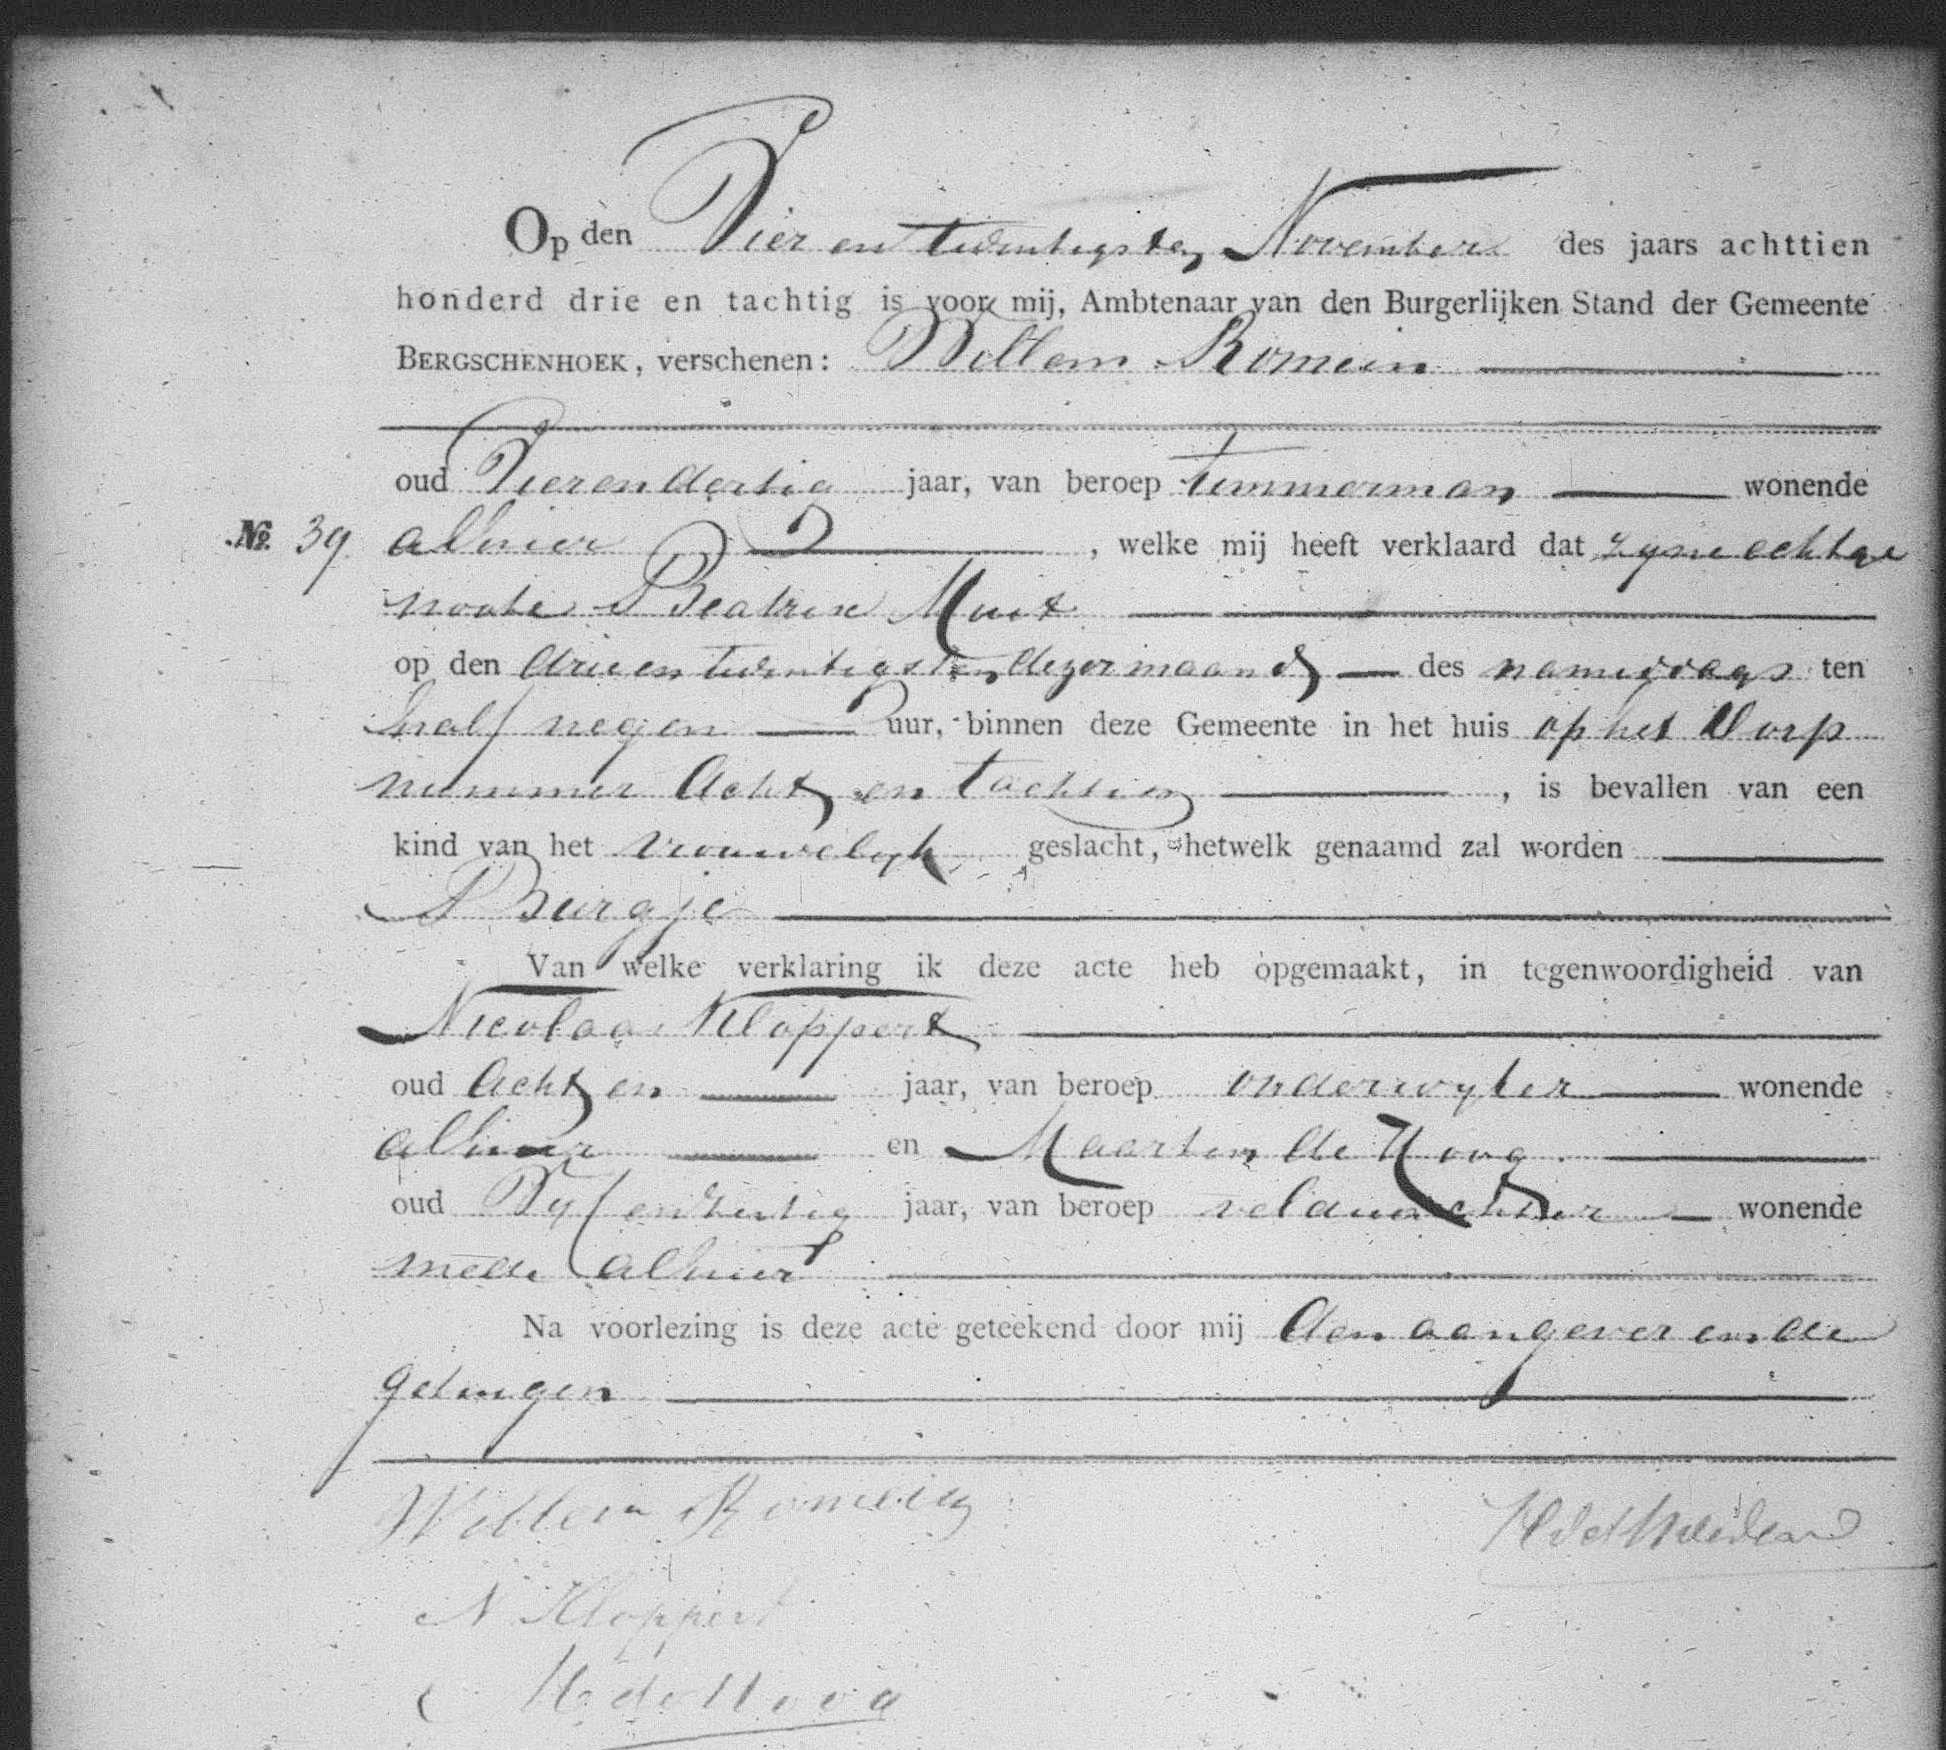 Op den Vier en twintigsten November des jaars achttien
honderd drie en tachtig is voor mij, Ambtenaar van den Burgerlijken Stand der Gemeente
BERGSCHENHOEK, verschenen: Willem Romein
oud Vierendertig jaar, van beroep timmerman wonende
No. 39 alhier, welke mij heeft verklaard dat zijne echtge
noote Beatrix Muit
op den drieentwintigsten dezer maand des namiddags ten
half negen uur, binnen deze Gemeente in het huis op het Dorp
nummer Acht en tachtig, is bevallen van een
kind van het vrouwelijk geslacht, hetwelk genaamd zal worden
Burgje
Van welke verklaring ik deze acte heb opgemaakt, in tegenwoordigheid van
Nicolaas Kloppert
oud Acht en jaar, van beroep onderwyzer wonende
alhier en Maarten de Hoog
oud Vyf en jaar, van beroep veldwachter wonende
mede alhier
Na voorlezing is deze acte geteekend door mij den aangever en de
getuigen
Willem Romein
N Kloppert
M de Hoog